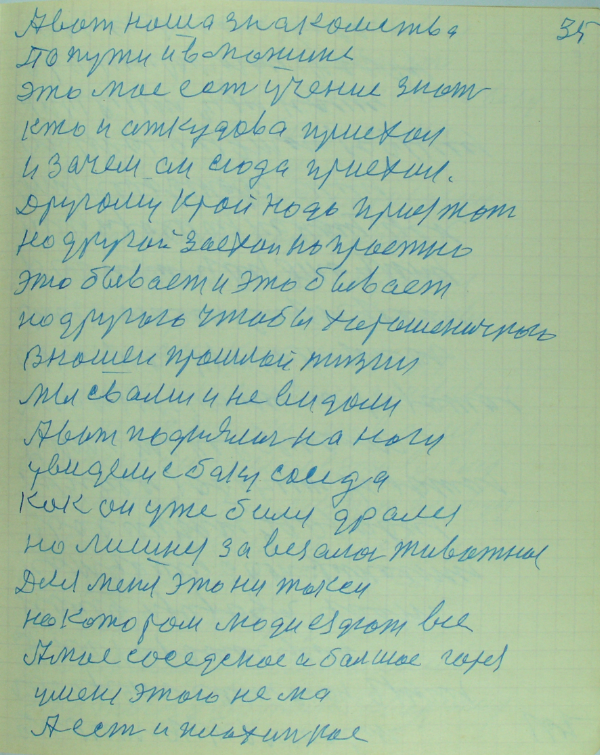 35
Авот наша знакомства
По пути и в
это мое сот учение знат
кто и аткудова приехал
и зачем он сюда приехал.
Другому край надь приезжат
На другой заехал напраежно
это бывает и это бывает
на другого чтобы харошеничного
В нашей прошлой жизни
Мы свами и не видали
Авот поднялис на ноги
увидели с баку соседа
Как он уже били драле
на за животное
Для меня это ни такси
на котором люди ездют все
Амое соседское и балшое горе
умене этого нема
А ест и